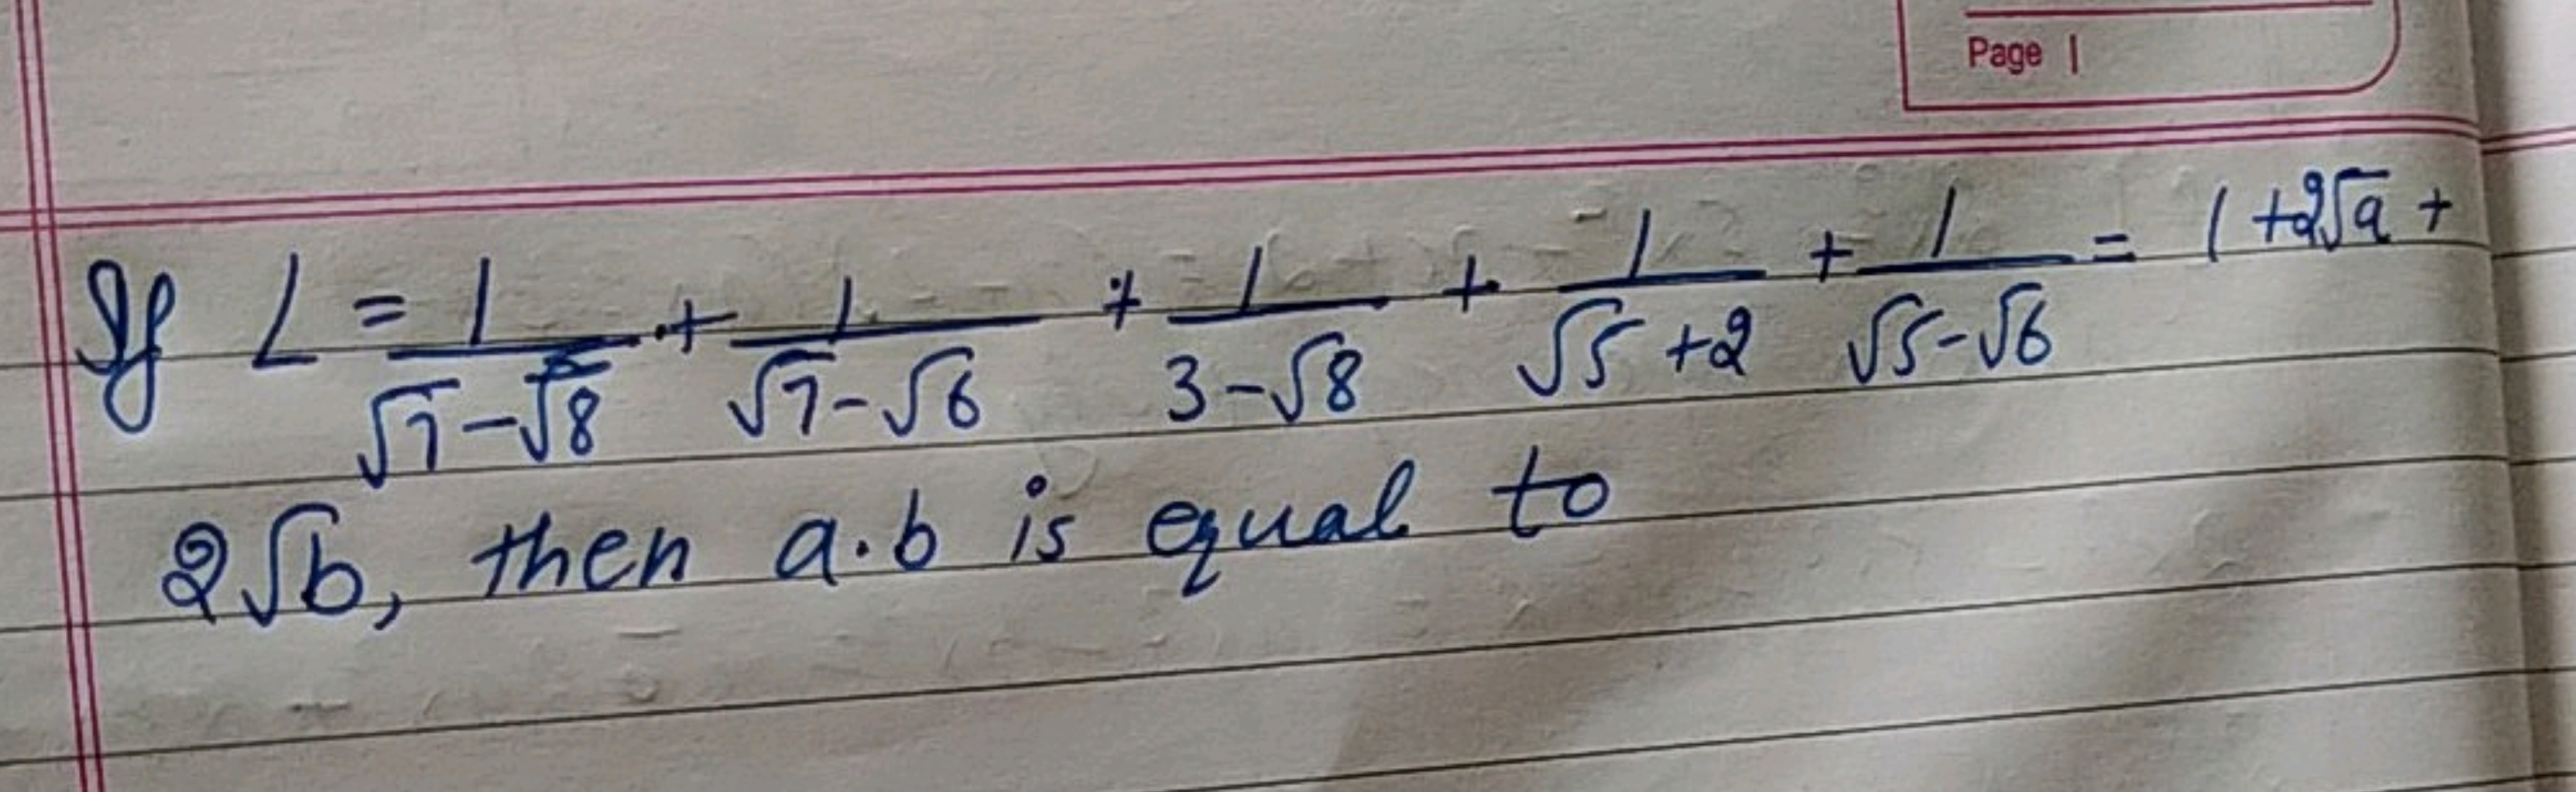 Page |
If L = 1/(√7-√8) + 1/(√7-√6) + 1/(3-√8) + 1/(√5+2) + 1/(√5-√6) = 1+2√a +
2√b, then a.b is equal to